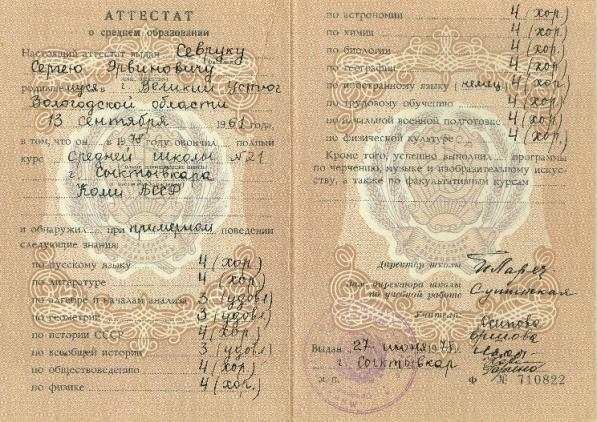 АТТЕСТАТ
о среднем образовании
Настоящий аттестат выдан Севруку
Сергею Ярвиновичу
родившемуся в г. Великий Устюг
Вологодской области
13 сентября 1961 года,
в том, что он в 1978 году окончил полный
курс средней школы №21
г. Сыктывкара
Коми АССР
и обнаружил при примерном поведении
следующие знания:
по русскому языку 4 (хор.)
по литературе 4 (хор.)
по алгебре и началам анализа 3 (удовл)
по геометрии 3 (удовл)
по истории СССР 4 (хор.)
по всеобщей истории 3 (удовл)
по обществоведению 4 (хор)
по физике 4 (хор.)
по астрономии 4 (хор.)
по химии 4 (хор.)
по биологии 4 (хор.)
по географии 4 (хор.)
по иностранному языку (немец.) 4 (хор.)
по трудовому обучению 4 (хор.)
по начальной военной подготовке 4 (хор.)
по физической культуре 4 (хор.)
Кроме того, успешно выполнил программы
по черчению, музыке и изобразительному искус-
ству, а также по факультативным курсам
Директор школы
Зам. директора школы
по учебной работе
Учителя:
Выдан 27 июня 1978 г.
г. Сыктывкар
м. п.
Ф № 710822